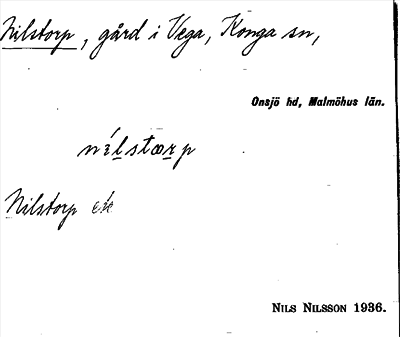 Nilstorp, gård i Vega, Konga sn,
Onsjö hd, Malmöhus län.
Nilstorp
NILS NILSSON 1936.